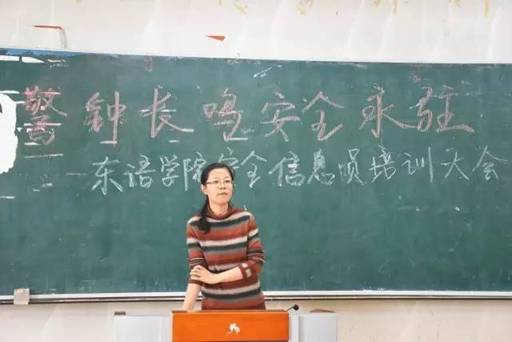 警钟长鸣安全永驻
东语学院安全信息员培训大会